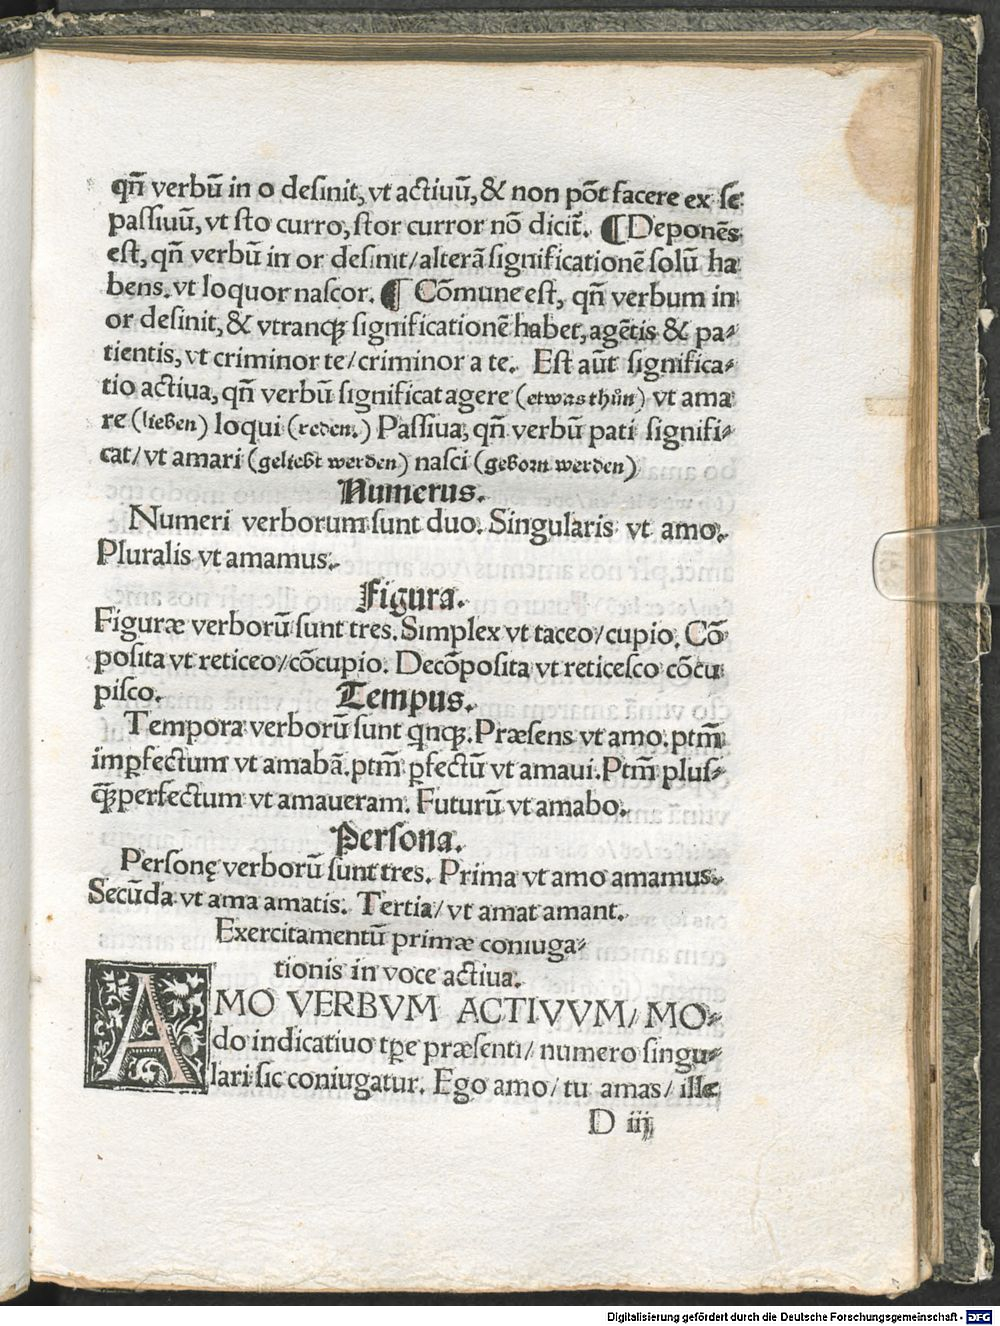 qn̄ verbū in o desinit, vt actiuū, & non pōt facere ex se
passiuū, vt sto curro, stor curror nō dicit̄. ¶ Deponēs
est, qn̄ verbū in or desinit/alterā significationē solū ha
bens. vt loquor nascor. ¶ Cōmune est, qn̄ verbum in
or desinit, & vtranqꝫ significationē habet, agētis & pa⸗
tientis, vt criminor te/criminor a te. Est aūt significa⸗
tio actiua, qn̄ verbū significat agere (etwas thůn) vt ama
re (lieben) loqui (reden.) Passiua, qn̄ verbū pati signifi⸗
cat/vt amari (geliebt werden) nasci (geborn werden)
Numerus.
Numeri verborum sunt duo. Singularis vt amo.
Pluralis vt amamus.
Figura.
Figuræ verborū sunt tres. Simplex vt taceo/cupio. Cō
posita vt reticeo/cōcupio. Decōposita vt reticesco cōcu
pisco. Tempus.
Tempora verborū sunt qnqꝫ. Præsens vt amo. ptm̄
imꝑfectum vt amabā. ptm̄ ꝑfectū vt amaui. Ptm̄ plus⸗
qꝫperfectum vt amaueram. Futurū vt amabo.
Persona.
Personę verborū sunt tres. Prima vt amo amamus.
Secūda vt ama amatis. Tertia/vt amat amant.
Exercitamentū primæ coniuga⸗
tionis in voce actiua.
AMO VERBVM ACTIVVM/MO⸗
do indicatiuo tꝑe præsenti/numero singu⸗
lari sic coniugatur. Ego amo/tu amas/ille
D iij
Digitalisierung gefördert durch die Deutsche Forschungsgemeinschaft - DFG